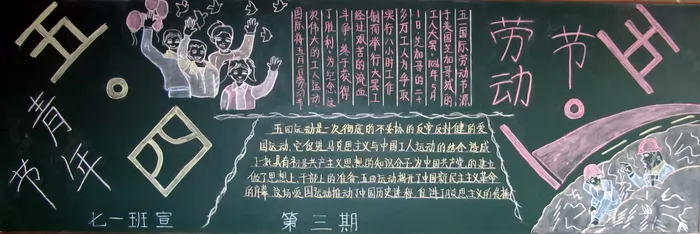 五·四
青年节
五一国际劳动节源
于美国芝加哥城的
工人大罢1886年5月
1日,芝加哥的二十
多万工人为争取
实行八小时工作
制而举行大罢工
经过艰苦的流血
斗争,终于获得
了胜利,为纪念这
次伟大的工人运动
国际将五月一日劳动节
劳动节
五·一
五四运动是一次彻底的不妥协的反帝反封建的爱
国运动,它促进马克思主义与中国工人运动的结合,造成
了一批具有初步共产主义思想的知识分子,为中国共产党的建立
做了思想上,干部上的准备。五四运动揭开了中国新民主主义革命
的序幕,这场爱国运动推动了中国历史进程,促进了马克思主义的传播
七一班宣
第三期